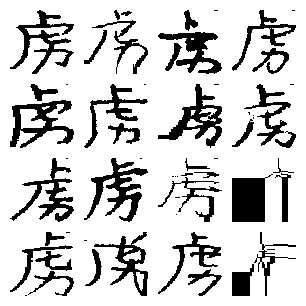 虏虏虏虏
虏虏虏虏
虏虏虏
虏虏虏